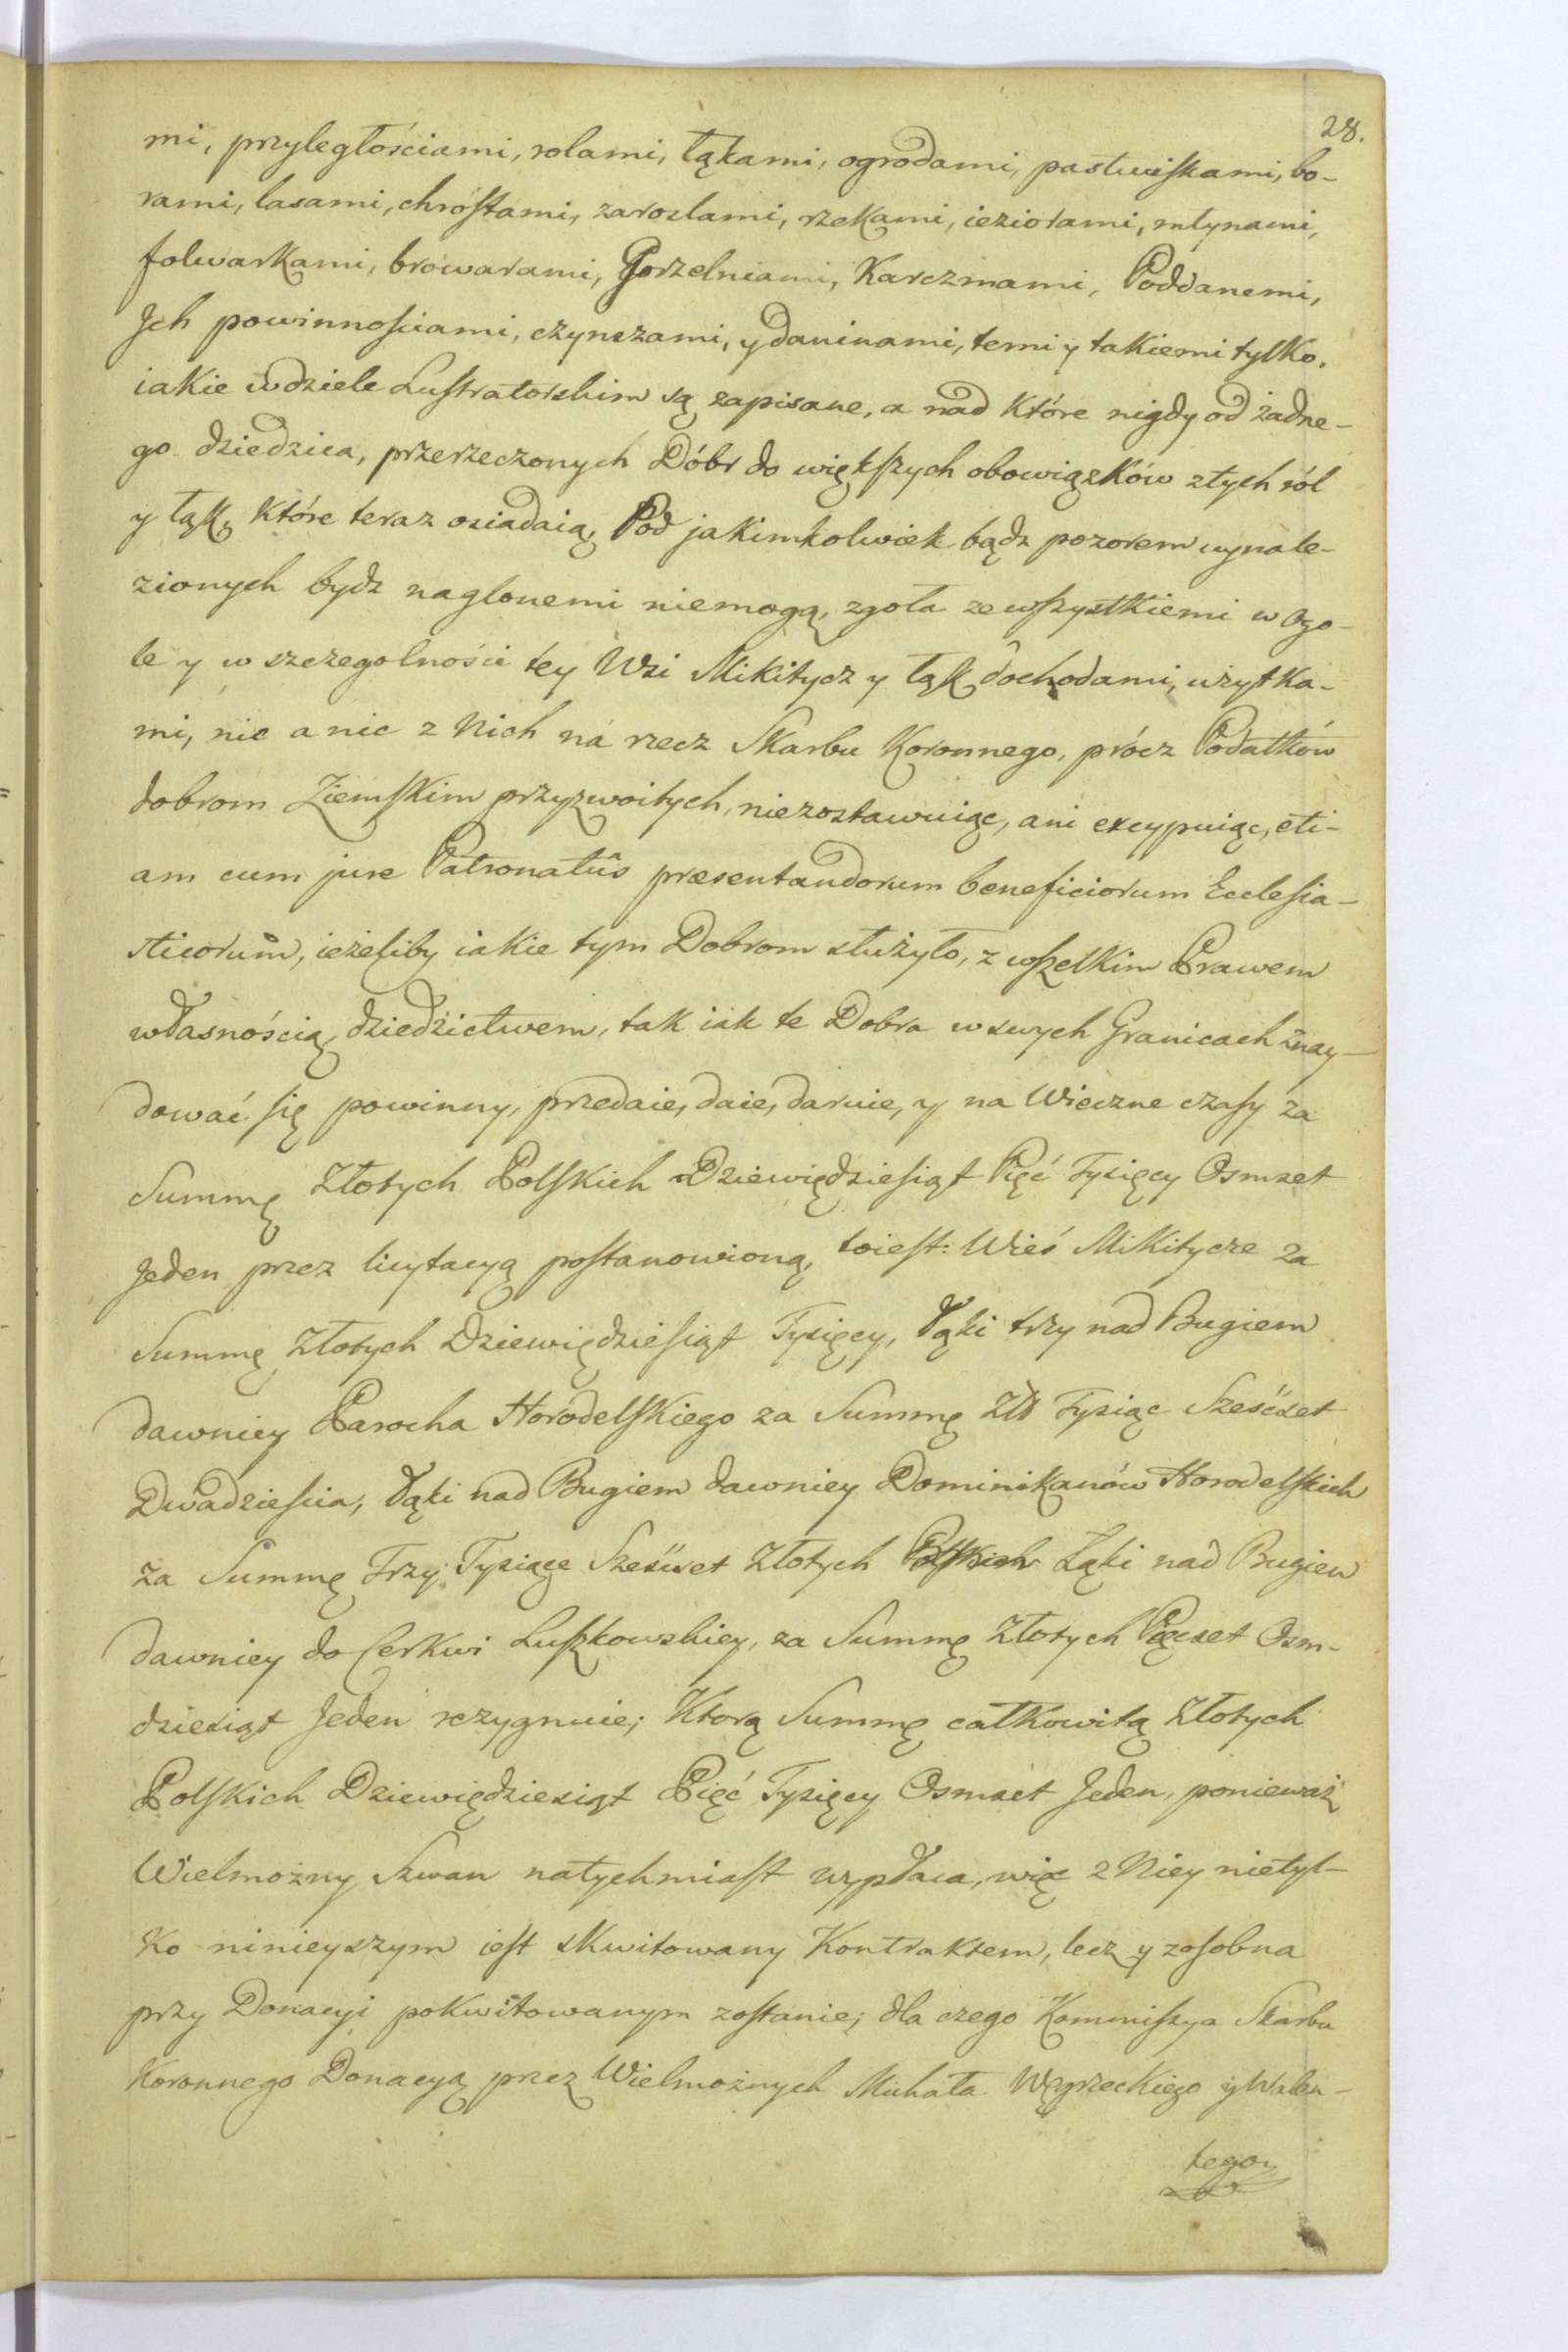 28.
mi, przyległościami, rolami, łąkami, ogrodami, pastwiskami, bo-
rami, lasami, chróstami, zaroslami, rzekami, ieziorami, młynami,
folwarkami, browarami, Gorzelniami, Karczmami, Poddanemi,
Jch powinnosciami, czynszami, y daninami, temi y takiemi tylko,
iakie w dziele Lustratorskim są zapisane, a nad które nigdy od żadne-
go dziedzica, przerzeczonych Dóbr do większych obowiązków z tych ról
y łąk, które teraz osiadaią, Pod jakimkolwiek bądz pozorem wynale-
zionych bydz naglonemi niemogą, zgoła ze wszystkiemi w ogo-
le y w szczegolności tey Wsi Mikitycz y łąk dochodami, użytka-
mi, nic a nic z Nich na rzecz Skarbu Koronnego, prócz Podatków
dobrom Ziemskim przyzwoitych, niezostawuiąc, ani excypuiąc, eti-
am cum jure Patronatûs præsentandorum beneficiorum Ecclesia-
sticorum, ieżeliby iakie tym Dobrom służyło, z wszelkim Prawem
własnością, dziedzictwem, tak iak te Dobra w swych Granicach znay-
dować się powinny, przedaie, daie, daruie, y na Wieczne czasy za
Summę Złotych Polskich Dziewięćdziesiąt Pięć Tysięcy Osmset
Jeden przez licytacyą postanowioną, toiest: Wieś Mikitycze za
Summę Złotych Dziewięćdziesiąt Tysięcy, Łąki trzy nad Bugiem
dawniey Parocha Horodelskiego za Summę Złł Tysiąc Sześćset
Dwadziescia, Łąki nad Bugiem dawniey Dominikanów Horodelskich
za Summę Trzy Tysiące Sześćset Złotych Polskich Łąki nad Bugiem
dawniey do Cerkwi Luszkowskiey, za Summę Złotych Pięcset Osm-
dziesiąt Jeden rezygnuie; Ktorą Summę całkowitą Złotych
Polskich Dziewiędziesiąt Pięć Tysięcy Osmset Jeden, ponieważ
Wielmożny Szwan natychmiast wypłaca, więc z Niey nietyl-
ko ninieyszym iest skwitowany Kontraktem, lecz y zosobna
przy Donacyi pokwitowanym zostanie; dla czego Kommissya Skarbu
Koronnego Donacyą przez Wielmożnych Michała Węgrzeckiego y Walen-
tego